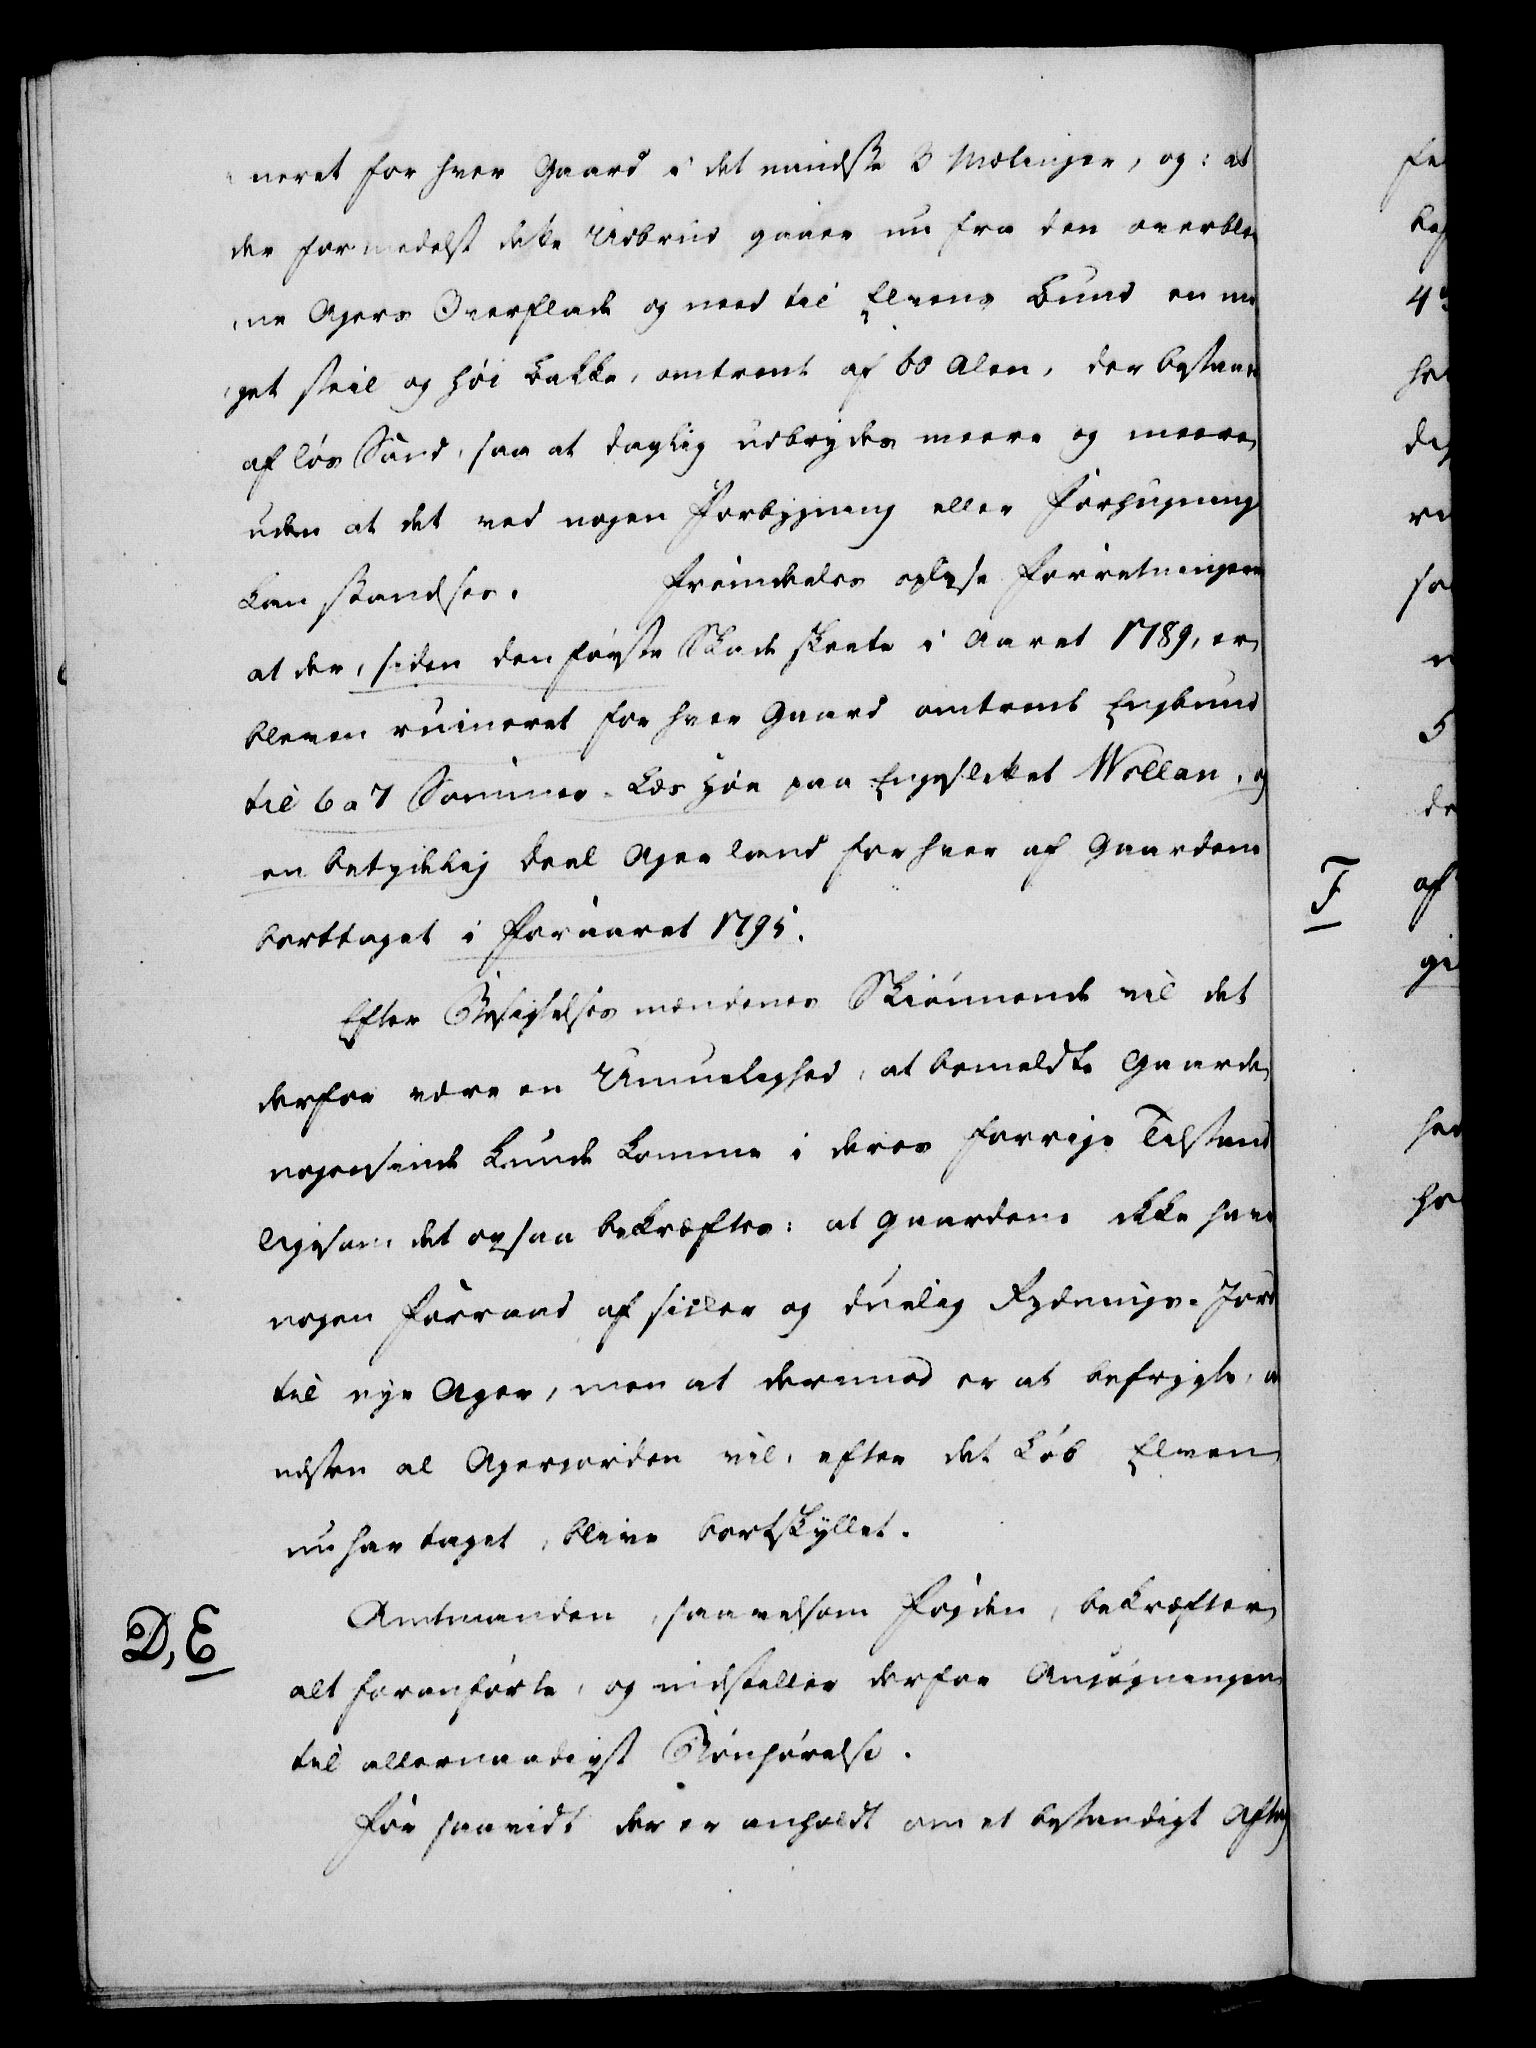 neret for hver Gaard i det mindste 3 Mælinger, og: at
der formedelst dette Udbrud gaaer nu fra den overble
ne Agers Overflade og need til Elvens Bund en me
get steil og høi Bakke, omtrent af 60 Alen, der bestaaer
af løs Sand, saa at daglig udbrydes meere og meere
uden at det ved nogen Forbygning eller Forhugning
kan standses. Fremdeeles oplyse Forretningerne
at der, siden den første Skade skeete i Aaret 1789, er
bleven ruineret for hver Gaard omtrent Engbund
til 6 a 7 Sommer-Læs Høe paa Engeslettet Wollan, og
en betydelig Deel Ager land for hver af Gaardene
borttaget i Foraaret 1795.
Efter Besigtelsesmændenes Skiønnende vil det
derfor være en Umuelighed, at bemeldte Gaarde
nogensinde kunde komme i deres forrige Tilstand
ligesom det ogsaa bekræftes: at Gaardene ikke have
nogen Forraad af sieler og duelig Rydnings-Jord
til nye Ager, men at derimod er at befrygte, a
næsten al Agerjorden vil, efter det Løb Elven
nu har taget, blive bortskyllet.
D, E
Amtmanden, saavelsom Fogden, bekræfter
alt foranførte, og indstiller derfor Ansøgningen
til allernaadigst Bønhørelse.
For saavidt der er anholdt om et bestandigt Aftag
F